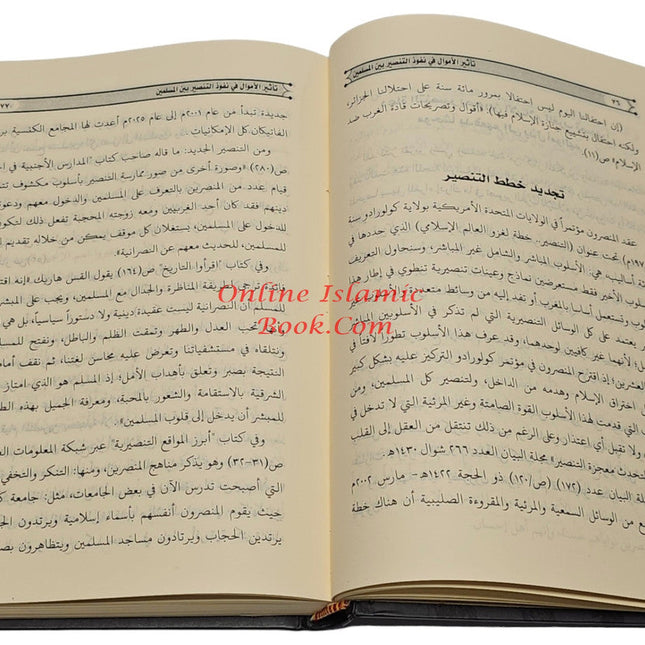 تأثير الأموال في نفوذ التنصير بين المسلمين
٢٦
(إن إحتفالنا اليوم ليس إحتفالا بمرور مائة سنة على احتلالنا الجزائر،
ولكنه احتفال بتشييع جنازة الإسلام فيها)». «أقوال وتصريحات قادة الغرب ضد
الإسلام» ص(١١).
تجديد خطط التنصير
عقد المنصرون مؤتمراً في الولايات المتحدة الأمريكية بولاية كولورادو سنة
تحت عنوان (التنصير.. خطة لغزو العالم الإسلامي) الذي حددها في
أساليب، هي: الأسلوب المباشر والشامل غير المباشر، وسنحاول التعريف
الأخير فقط مستعرضين نماذج وعينات تنصيرية تنطوي في إطار هذا
وتستعمل أساسا بالمغرب أو تفد إليه من وسائط متعددة
يعتمد على كل الوسائل التنصيرية التي لم تذكر في الأسلوبين
لأنهما غير كافيين لوحدهما، وقد عرف هذا الأسلوب تطورا لافتا في
العشرين؛ إذ اقترح المنصرون في مؤتمر كولورادو التركيز عليه بشكل كبير
اختراق الإسلام وهدمه من الداخل، ولتنصير كل المسلمين، ومن
التي قدمت لهذا الأسلوب القوة الصامتة وغير المرئية التي لا تدخل في
ولا تقبل أي اعتذار وعلى الرغم من ذلك تنتقل من العقل إلى القلب
تحدث معجزة التنصير» مجلة البيان العدد ٢٦٦ شوال ١٤٣٠هـ.
البيان عدد (١٧٢) ص(١٢٠) ذو الحجة ١٤٢٢هـ - مارس ٢٠٠٢م
من الوسائل السمعية والمرئية والمقروءة الصليبية أن هناك خطة
تأثير الأموال في نفوذ التنصير بين المسلمين
جديدة تبدأ من عام ٢٠٠١م إلى عام ٢٠٢٥م أعدت لها المجامع الكنسية
الفاتيكان كل الإمكانيات.
ومن التنصير الجديد: ما قاله صاحب كتاب «المدارس الأجنبية في
ص(٢٨٠) «وصورة أخرى من صور ممارسة التنصير بأسلوب مكشوف
قيام عدد من المنصرين بالتعرف على المسلمين والدخول معهم
دينهم فقد كان أحد الغربيين ومعه زوجته المحجبة تفعل ذلك
للدخول على المسلمين، يستغلان كل موقف يمكن من خلاله تقديم
للمسلمين، للحديث معهم عن النصرانية».
وفي كتاب «اقرأوا التاريخ» ص(١٦٤) يقول القس هاريك: «إنه
فائدة ترجى من طريقة المناظرة والجدال مع المسلمين، ويجب على
للمسلم أن النصرانية ليست عقيدة دينية ولا دستوراً سياسيا، بل هي
تحب العدل والطهر وتمقت الظلم والباطل، ونفتح للمسلم
ونتلقاه في مستشفياتنا ونعرض عليه محاسن لغتنا، ثم نقف أمام
النتيجة بصبر وتعلق بأهداب الأمل؛ إذ المسلم هو الذي امتاز
الشرقية بالاستقامة والشعور بالمحبة، ومعرفة الجميل بهذه
للمبشر أن يدخل إلى قلوب المسلمين».
وفي كتاب «أبرز المواقع التنصيرية» عبر شبكة المعلومات
ص(٣١-٣٢) وهو يذكر مناهج المنصرين، ومنها: التنكر والتخفي
التي أصبحت تدرس الآن في بعض الجامعات، مثل: جامعة
حيث يقوم المنصرون أنفسهم بأسماء إسلامية ويرتدون
يرتدين الحجاب ويرتادون مساجد المسلمين ويتظاهرون
Online Islamic
Book.Com